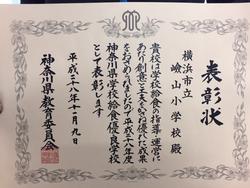 表彰状
横浜市立
嶮山小学校殿
貴校は学校給食の指導運営に
あたり創意と工夫をこらし優れた成果
をおさめられましたので平成二八年度
神奈川県学校給食優良学校
として表彰します
平成二八年十一月九日
神奈川県教育委員会